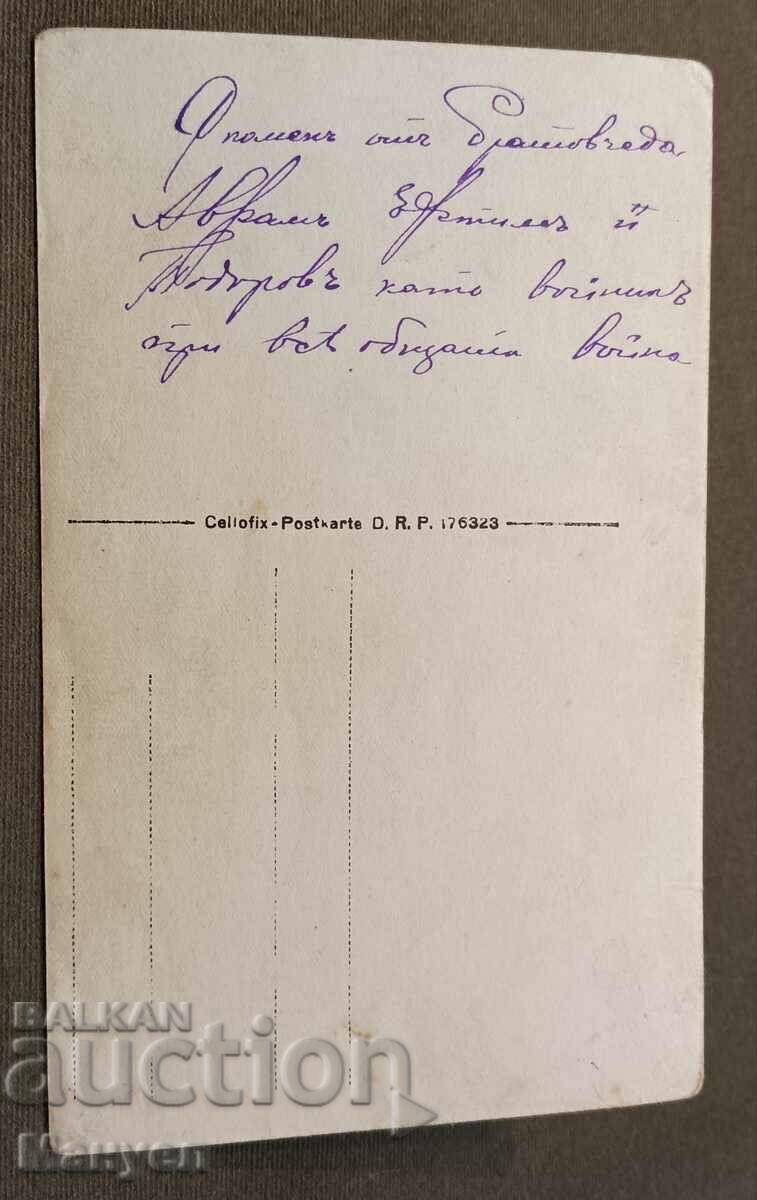 Спомен отъ братовчеда
Аврамъ й
Тодоровъ като войникъ
при всѣобщата война
Cellofix-Postkarte D. R. P. 176323
BALKAN
auction
Manyen